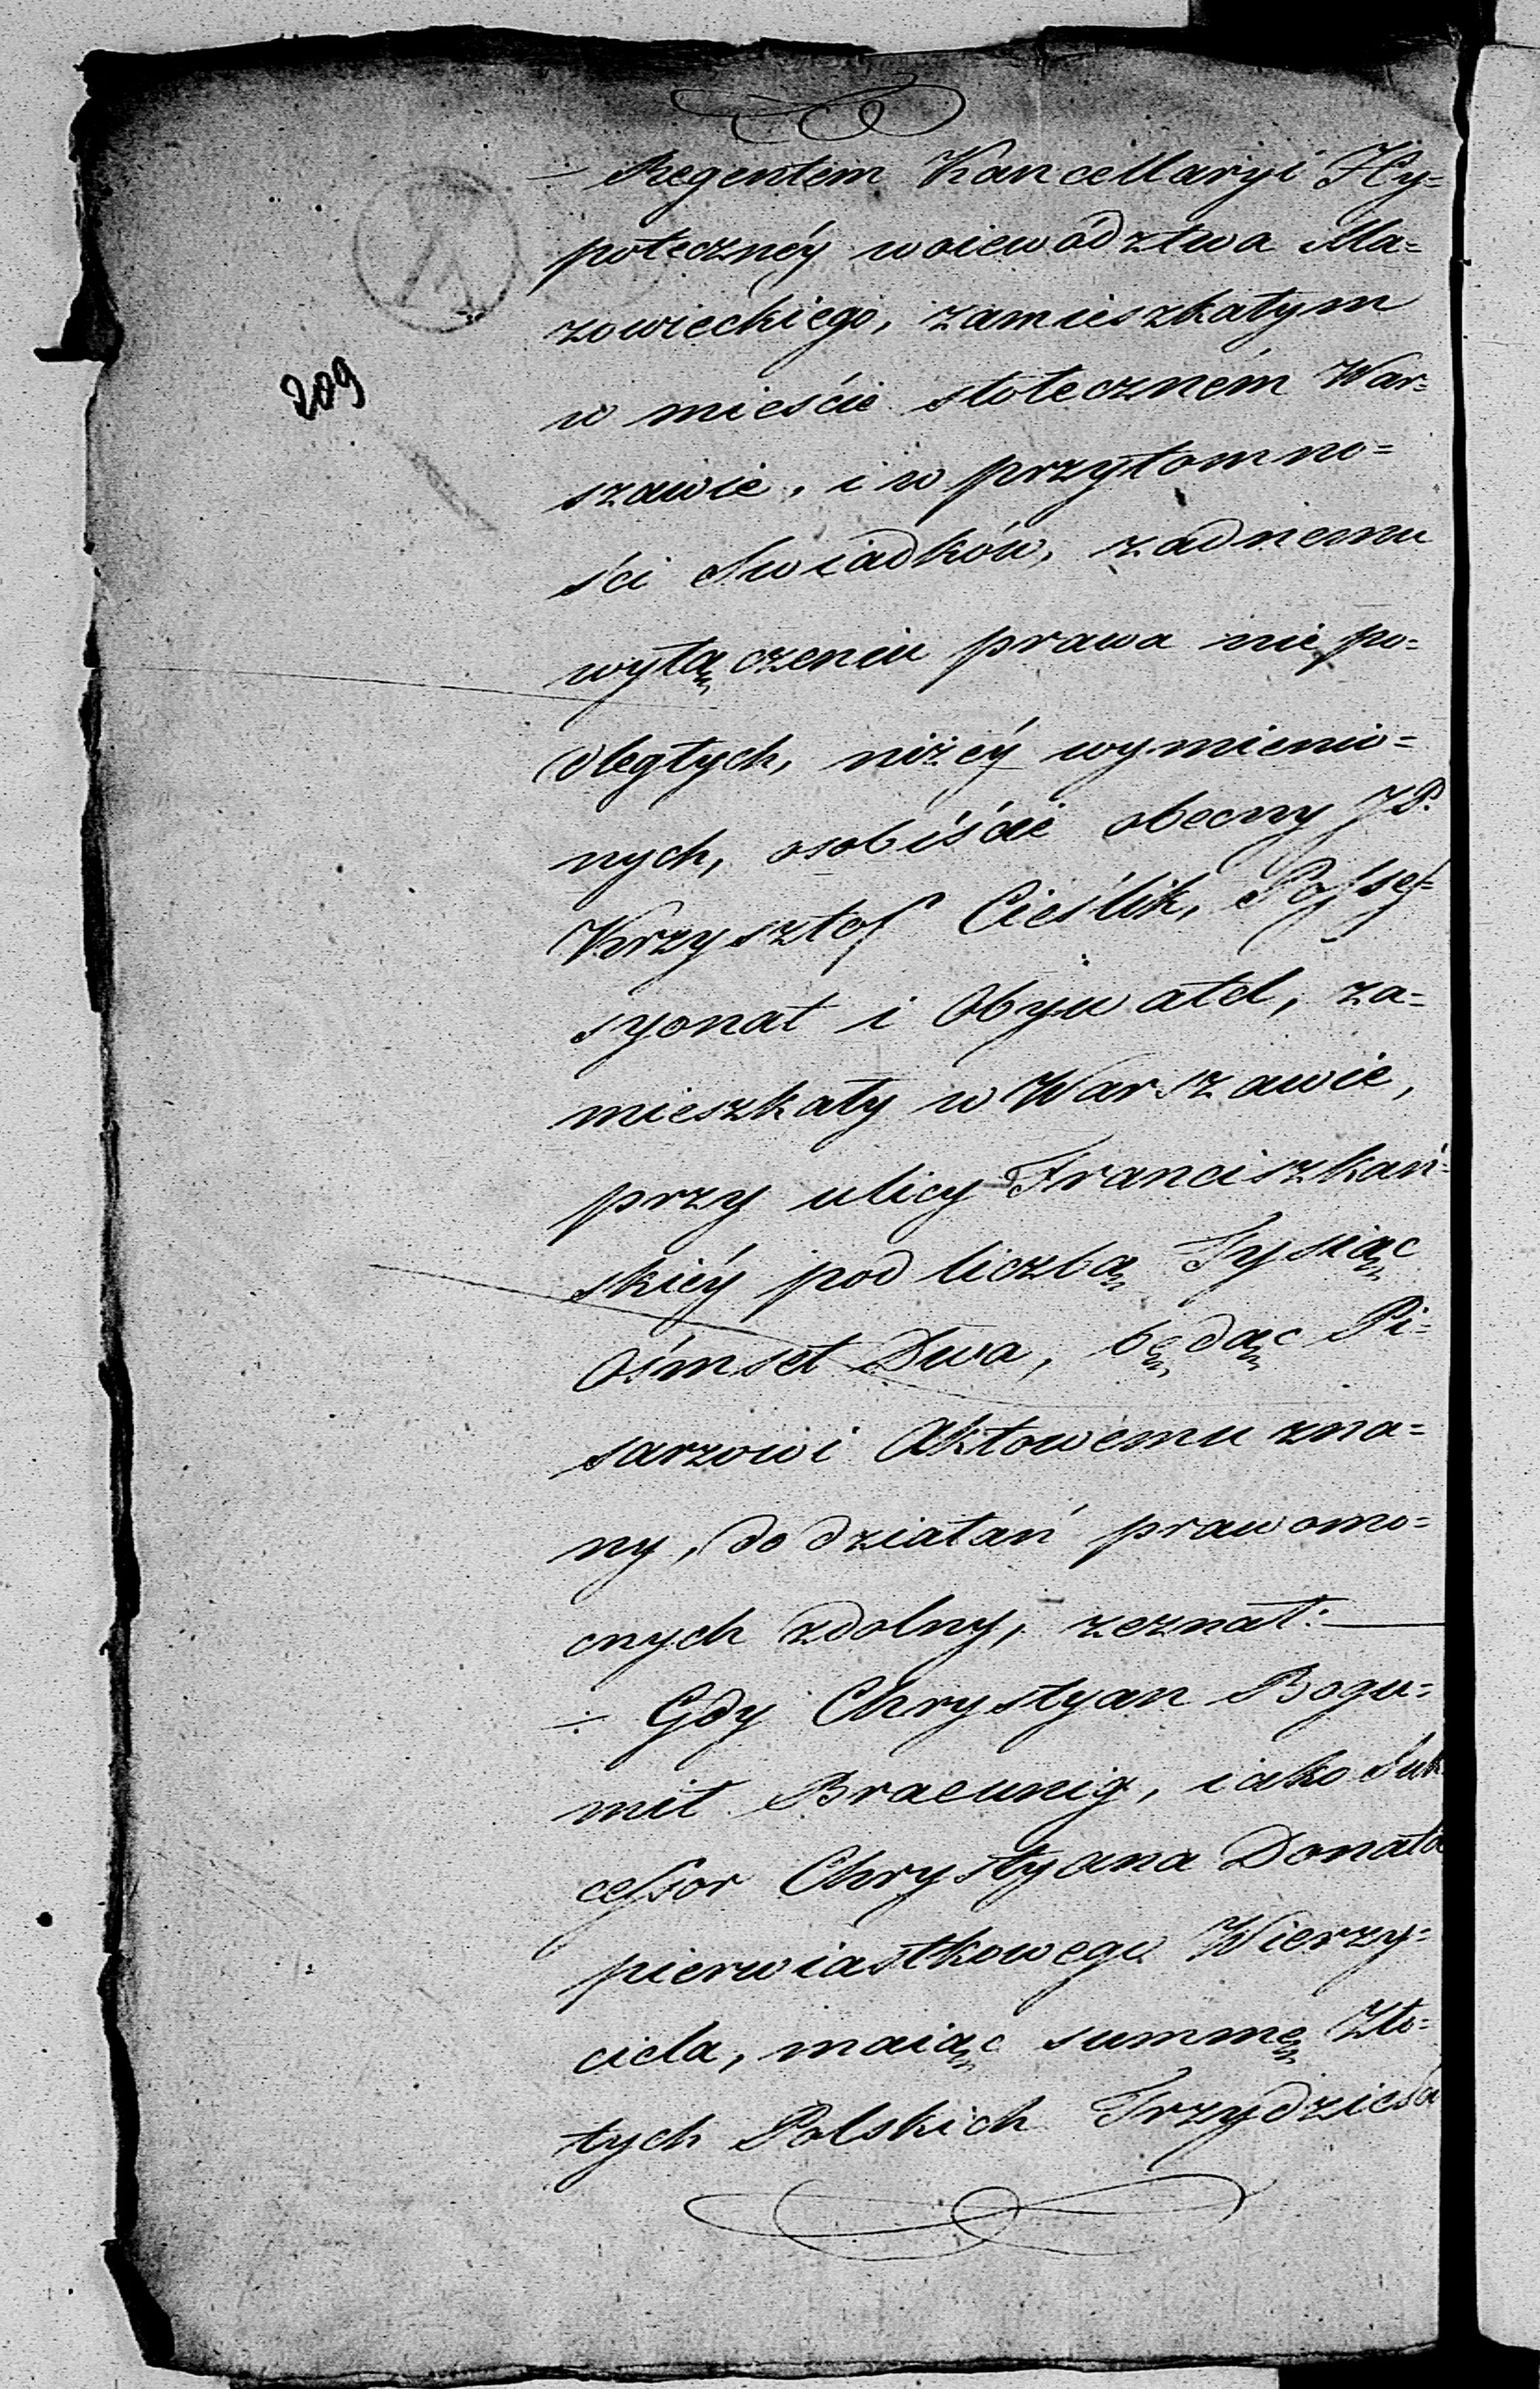 - Regentem Kancellaryi Hy=
poteczney woiewództwa Ma=
209
zowieckiego, zamieszkałym
w mieście stołecznem War=
szawie, i w przytomno=
ści Swiadków, żadnemu
wyłączeniu prawa nie po=
dległych, niżéy wymienio=
nych, osobiście obecny JP.
Krzysztof Cieślik, Posses=
syonat i Obywatel, za=
mieszkały w Warszawie,
przy ulicy Franciszkań=
skiéy pod liczbą Tysiąc
Ośmset Dwa, będąc Pi=
sarzowi Aktowemu zna=
ny, do działań prawomo=
cnych zdolny, zeznał:—
÷ Gdy Chrystyan Bogu=
mił Braeunig, iako Suk
cessor Chrystyana Donata
pierwiastkowego Wierzy=
ciela, maiąc summę Zło=
tych Polskich Trzydzieści